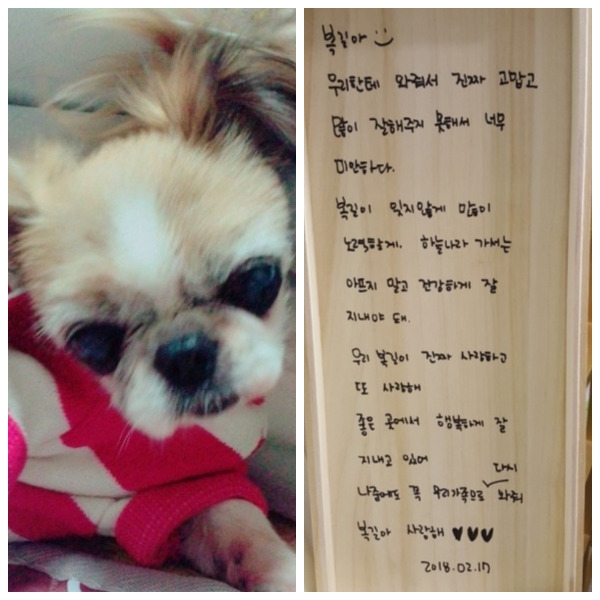 복길아
우리한테 와줘서 진짜 고맙고
많이 잘해주지 못해서 너무
미안하다.
복길이 잊지않게 많이
노력할게. 하늘나라 가서는
아프지 말고 건강하게 잘
지내야 돼.
우리 복길이 진짜 사랑하고
또 사랑해
좋은 곳에서 행복하게 잘
지내고 있어
나중에도 꼭 우리가족으로 다시 와줘
복길아 사랑해 ♥♥♥
2018.02.17